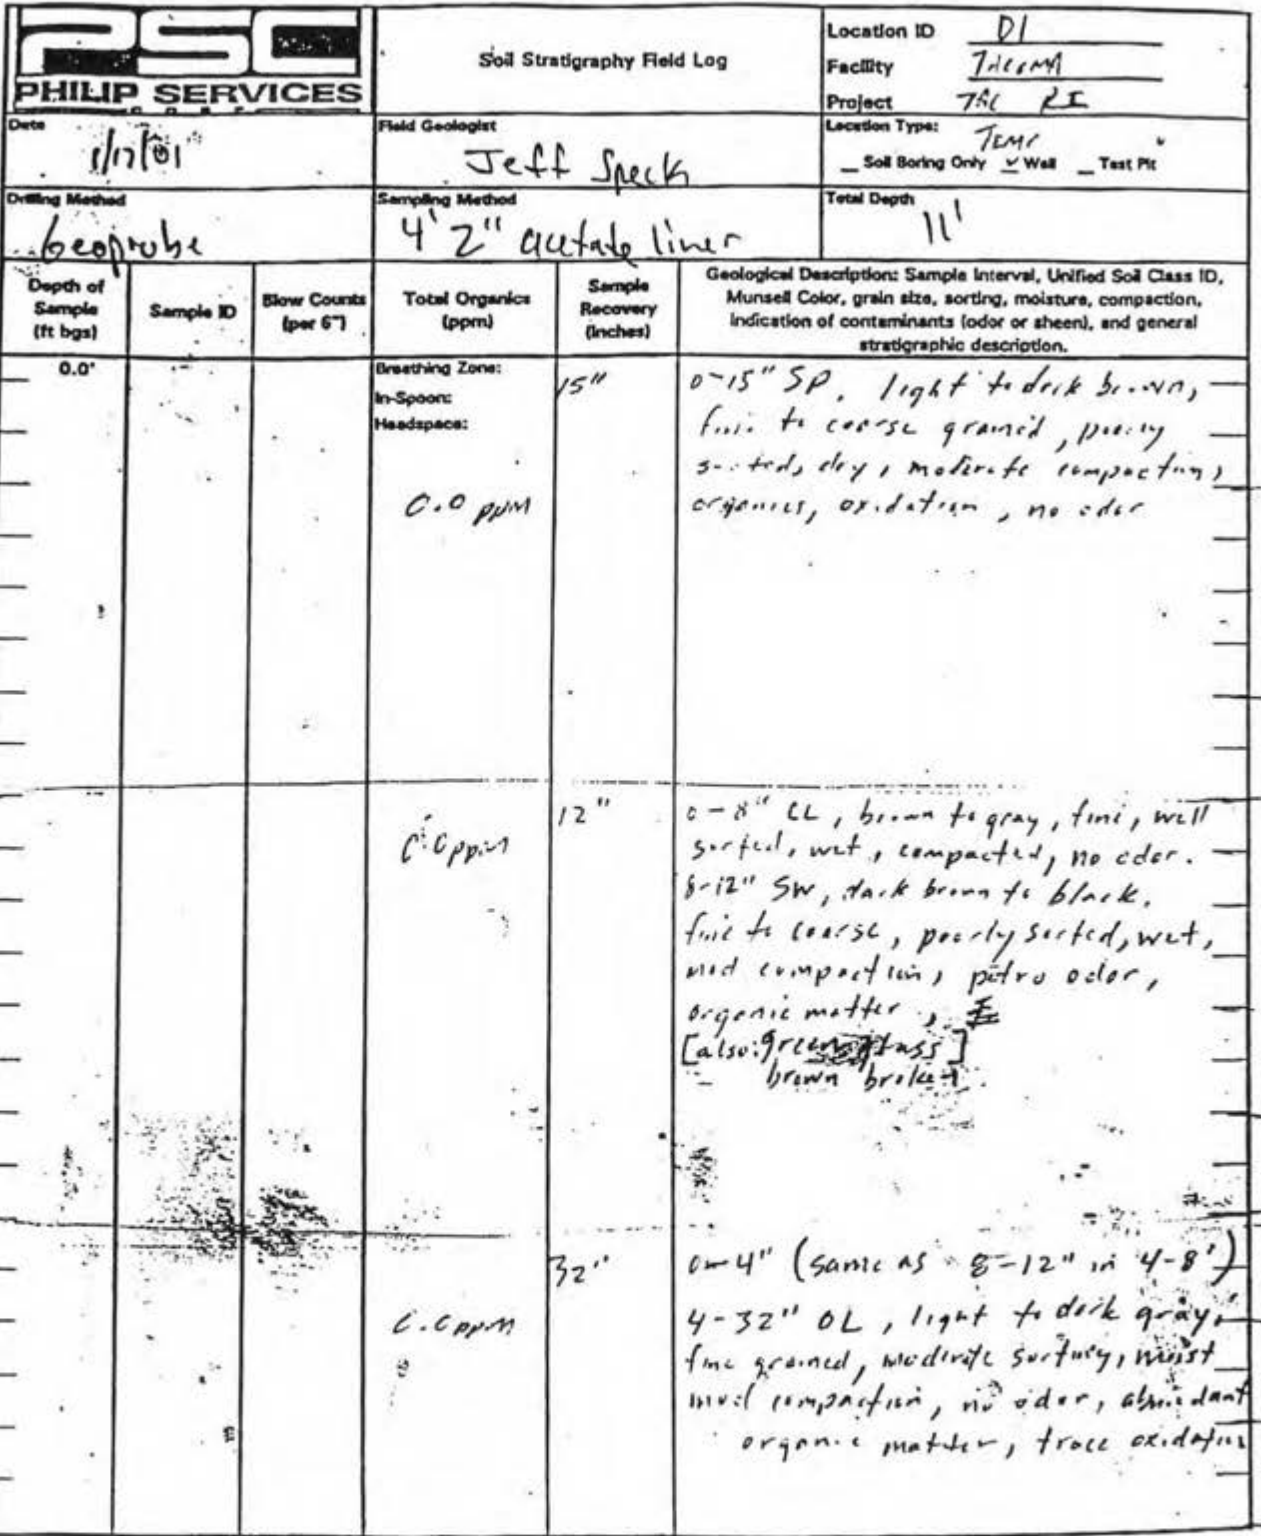 PSC
PHILIP SERVICES
CORP
Soil Stratigraphy Field Log
Location ID D1
Facility Tacoma
Project TAC RI
Date
1/17/01
Field Geologist
Jeff Speck
Location Type:
Temp
_ Soil Boring Only ✓ Well _ Test Pit
Drilling Method
Geoprobe
Sampling Method
4' 2" acetate liner
Total Depth
11'
Depth of Sample (ft bgs)
Sample ID
Blow Counts (per 6")
Total Organics (ppm)
Sample Recovery (Inches)
Geological Description: Sample Interval, Unified Soil Class ID,
Munsell Color, grain size, sorting, moisture, compaction,
indication of contaminants (odor or sheen), and general
stratigraphic description.
0.0'
Breathing Zone:
In-Spoon:
Headspace:
0.0 ppm
15"
0-15" SP, light to dark brown,
fine to coarse grained, poorly
sorted, dry, moderate compaction,
organics, oxidation, no odor
0.0ppm
12"
0-8" CL, brown to gray, fine, well
sorted, wet, compacted, no odor.
8-12" SW, dark brown to black.
fine to coarse, poorly sorted, wet,
mod compaction, petro odor,
organic matter,
[also: green glass]
brown broken
0.0ppm
32"
0-4" (same as 8-12" in 4-8')
4-32" OL, light to dark gray,
fine grained, moderate sorting, moist
mod compaction, no odor, abundant
organic matter, trace oxidation